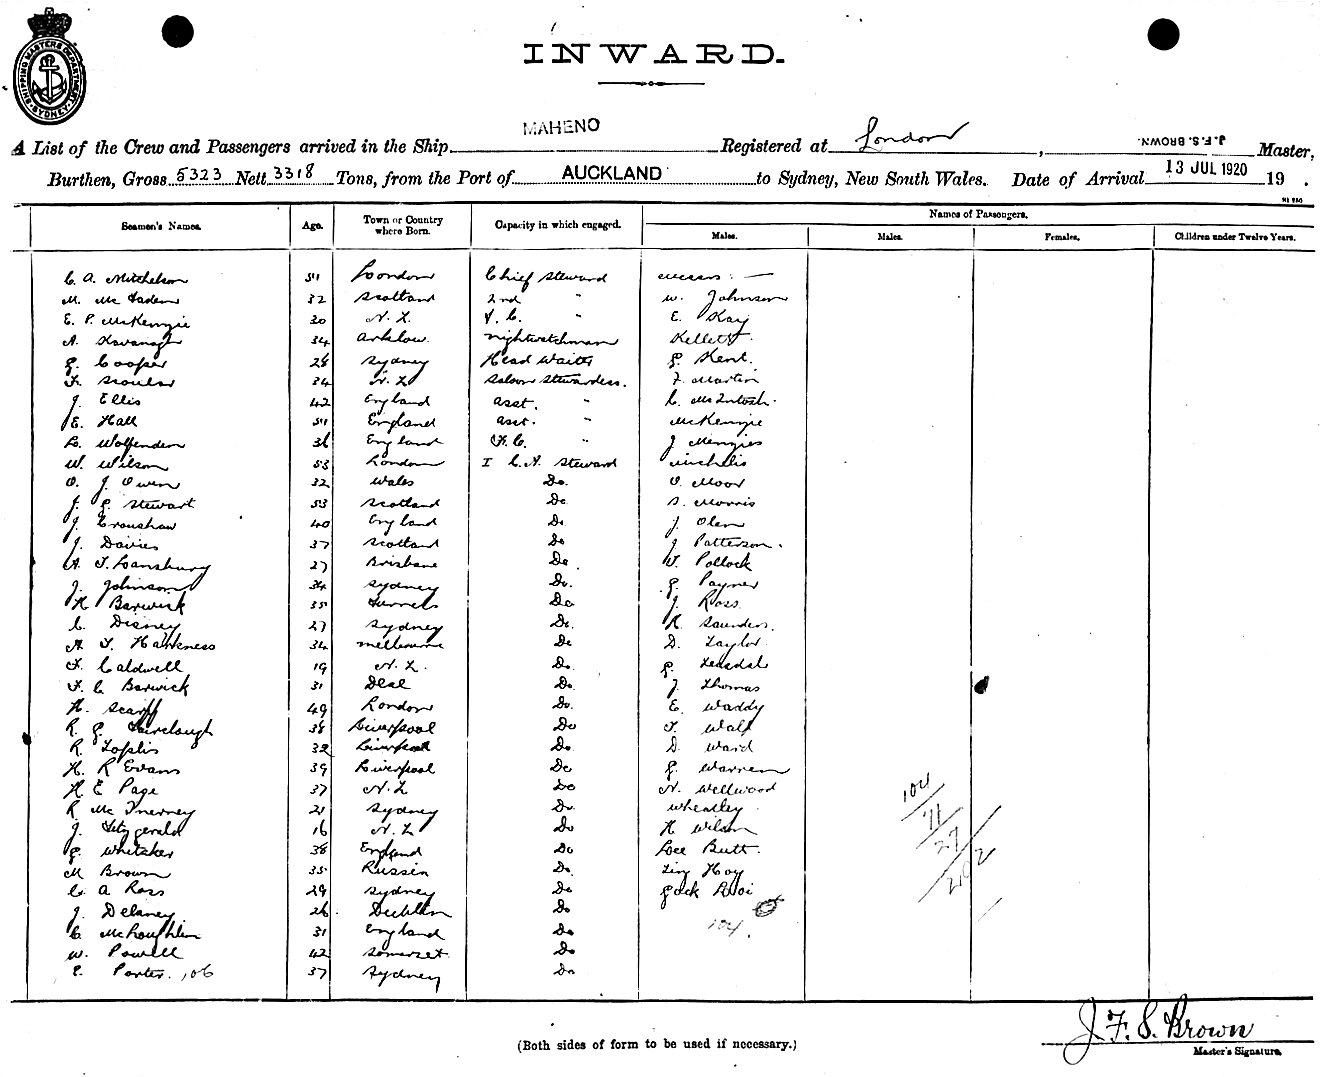 SHIPPING MASTERS DEPARTMENT SYDNEY
INWARD.
A List of the Crew and Passengers arrived in the Ship MAHENO Registered at London, J.F.S. BROWN Master,
Burthen, Gross 5323 Nett 3318 Tons, from the Port of AUCKLAND to Sydney, New South Wales. Date of Arrival 13 JUL 1920 19 .
Seamen's Names. Age. Town or Country where Born. Capacity in which engaged. Names of Passengers.
Males. Males. Females. Children under Twelve Years.
C. A. Mitchelson 54 London Chief Steward Messrs: —
M. Mc Faden 32 Scotland 2nd " W. Johnson
E. P. McKenzie 30 N.Z. F.C. " E. Kay
A. Kavanagh 34 Arklow. Nightwatchman Kellett
G. Cooper 28 Sydney Head Waiter G. Kent.
F. 34 N.Z Saloon Stewardess. F. Martin
J. Ellis 42 England asst. " C. McIntosh.
E. Hall 54 England asst. " McKenzie
B. Wolfenden 36 England F.C. " J Menzies
W. Wilson 53 London I Steward
O. J. Owen 32 Wales Do. O. Moor
J. G. Stewart 53 Scotland Do S. Morris
J Cronshaw 40 England Do J Olen
J. Davies 37 Scotland Do J Patterson.
A. T. Lansbury 27 Brisbane Do. Pollock
J. Johnson 34 Sydney Do. G Payner
H Barwick 35 Do J. Ross
C. Disney 27 Sydney Do. R Saunders.
A. T. Harkness 34 Melbourne Do D. Taylor
F. Caldwell 19 N.Z. Do. G.
F. C Barwick 31 Deal Do J. Thomas
H. Scarff 49 London Do. E. Waddy
R. G. Fairclough 38 Liverpool Do
R. Loftis 32 Liverpool Do D. Ward
H. R Evans 39 Liverpool Do G. Warren
H E Page 37 N.Z Do N. Wellwood
R Mc Inerney 21 Sydney Do. Wheatley
J. Fitzgerald 16 N.Z Do H Wilson
G. Whitaker 38 England Do Butt.
M Brown 35 Russia Do. Hoy
C. A Ross 29 Sydney Do
J. Delaney 26 Dublin Do
C. McLoughlin 31 England Do 104.
W. Powell 42 Somerset. Do
E. Porter. 106 37 Sydney Do
104
71
27
202
J. F. S. Brown
Master's Signature.
(Both sides of form to be used if necessary.)